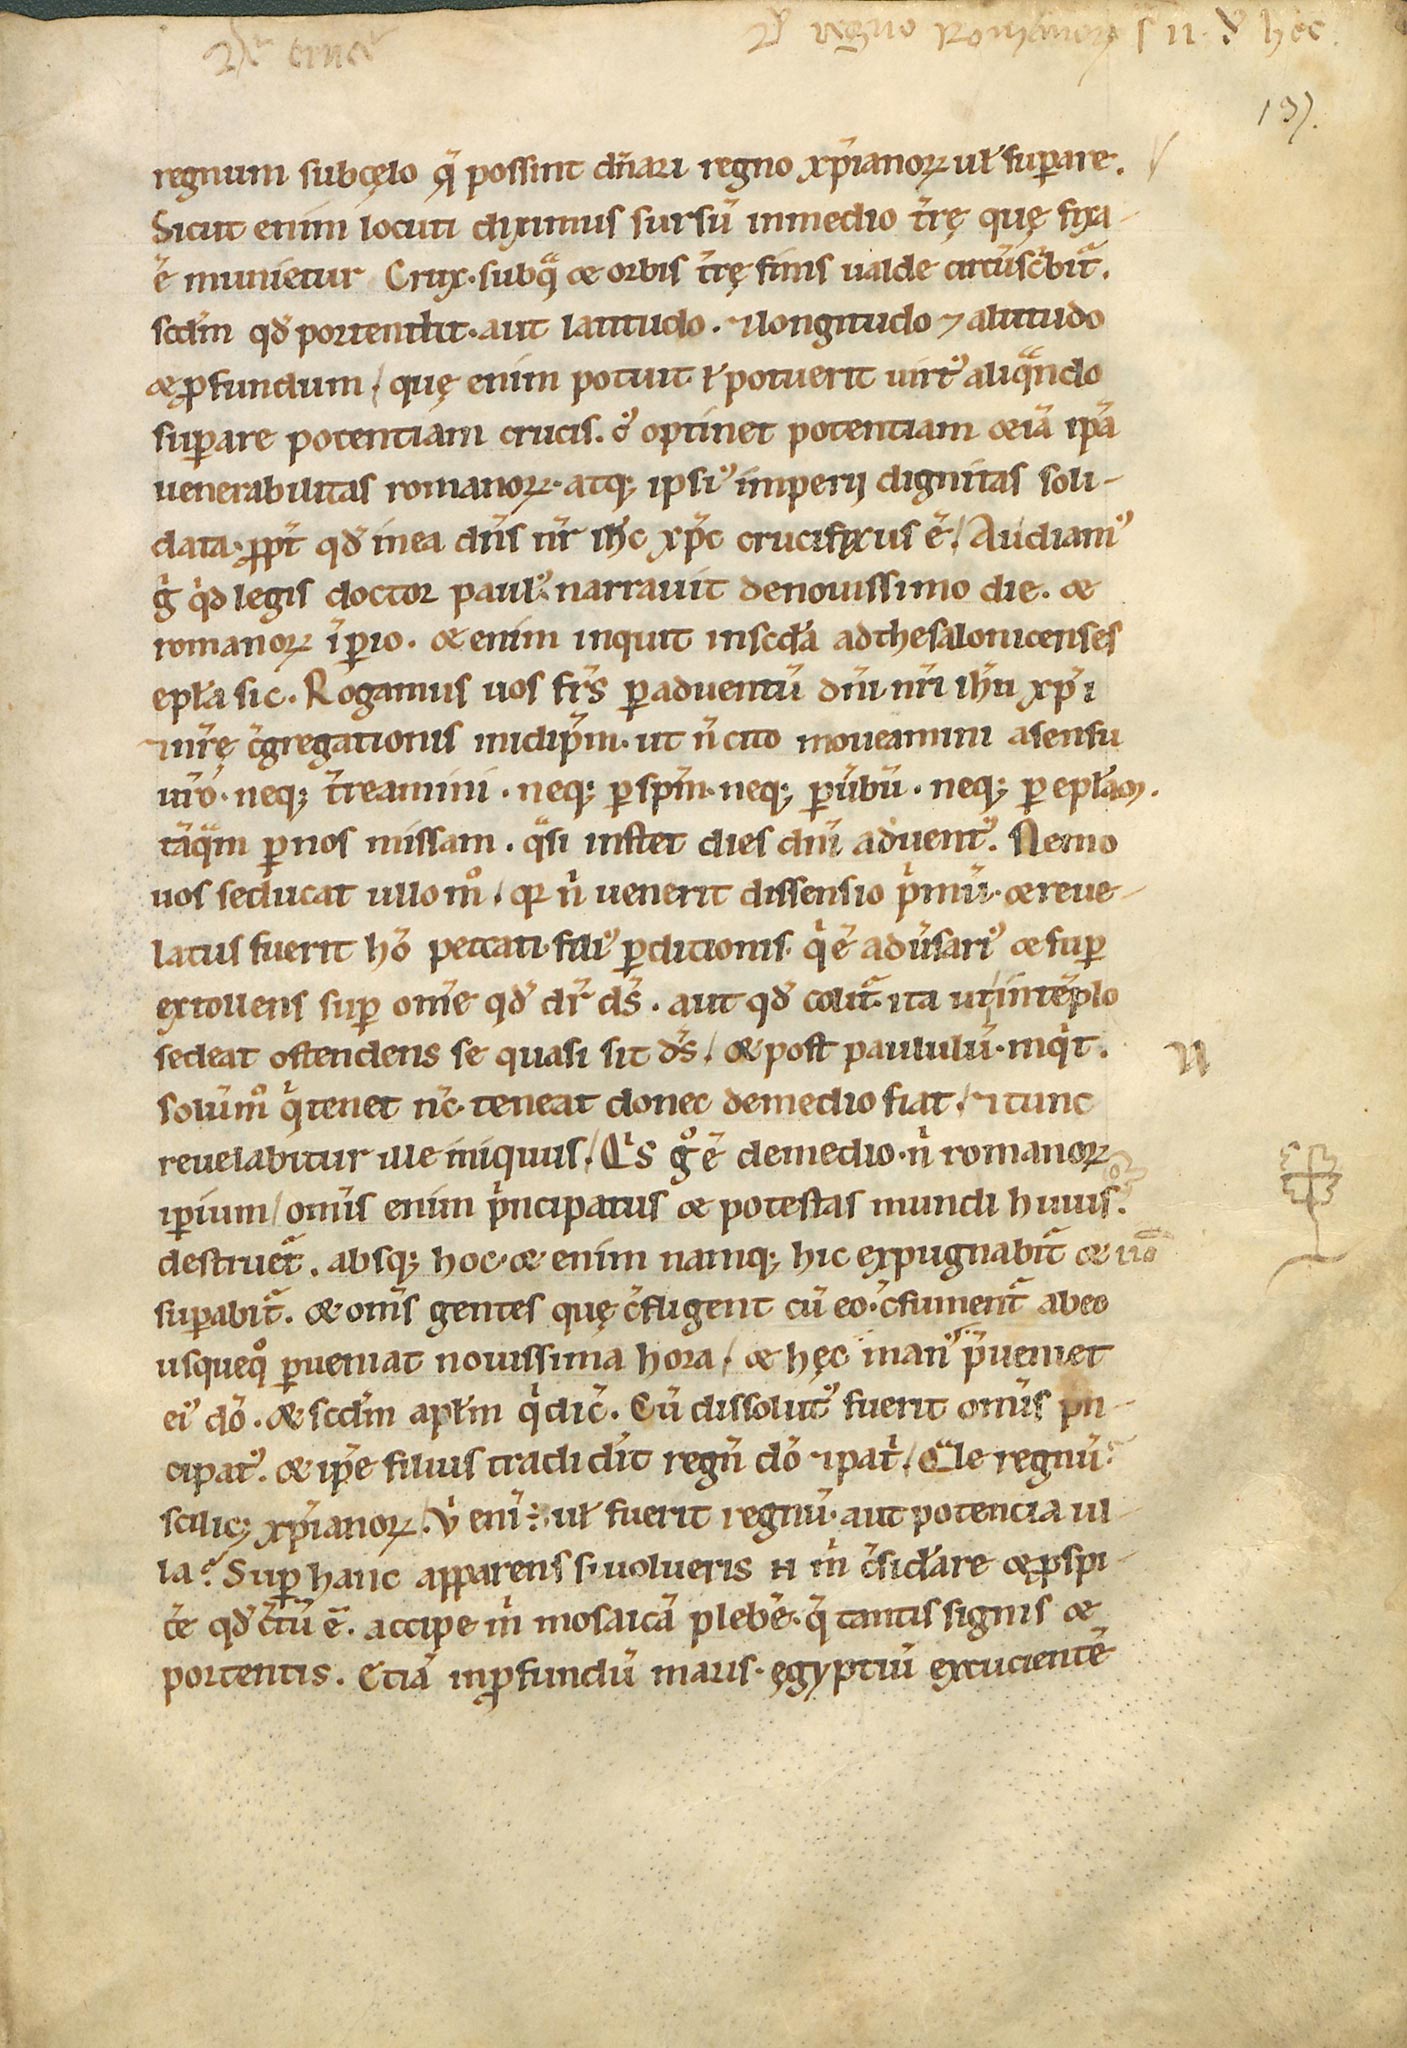 regnum subcęlo q̄ possint dn̄ari regno xp̄ianoꝝ uł suꝑare.
Sicut enim locuti diximus sursū inmedio tr̄ę quę fixa
ē munietur Crux. subq̄ & orbis tr̄ę finis ualde circūsc̄bit̄.
scd̄m qd̄ portendit. aut latitudo. ⁊longitudo ⁊altitudo
&ꝓfundum / quę enim potuit ł potuerit uirt᷒ aliq̄ndo
suꝑare potentiam crucis. optinet potentiam &iā ip̄a
uenerabilitas romanoꝝ. atq; ipsi᷒ imperii dignitas soli-
data. ꝓpt̄ qd̄ inea dn̄s nr̄ ih̄c xp̄c crucifixus ē / Audiam᷒
g̊ qͥd legis doctor paul᷒. narrauit denouissimo die. &
romanoꝝ īꝑio. & enim inquit inscd̄a adthesalonicenses
epła sic. Rogamus uos fr̄s ꝑaduentū dn̄i nr̄i ih̄u xp̄i
⁊nr̄ę c̄gregationis inidip̄m. ut n̄ cito moueamini asensu
ur̄o. neq; tr̄reamini. neq; ꝑspm̄. neq; ꝑūbū. neq; ꝑ epłam.
tāq̄m ꝑ nos missam. q̄si instet dies dn̄i aduent᷒. Nemo
uos seducat ullo m̊ / qꝛ nͥ uenerit dissensio pͥmū. & reue-
latus fuerit hō peccati. fili᷒ ꝑditionis. qͥ ē adūsari᷒ & suꝑ
extollens suꝑ om̄e qd̄ dr̄ ds̄. aut qd̄ colit̄. ita ut intēplo
sedeat ostendens se quasi sit ds̄ / & post paululū. inqͥt.
solūm̊ qͥ tenet nc̄. teneat donec demedio fiat / ⁊tunc
reuelabitur ille iniquus / Qͥs g̊ ē demedio. nͥ romanoꝝ
iꝑium / om̄is enim pͥncipatus & potestas mundi huius᷒
destruet̄. absq; hoc. & enim namq; hic expugnabit̄ & nō
suꝑabit̄. & om̄s gentes quę c̄fligent cū eo. c̄sument̄ abeo
usqueq̊ ꝑueniat nouissima hora / & hęc man᷒ p̄ueniet
ei᷒ dō. & scd̄m apłm qͥ dic̄. Cū dissolut᷒ fuerit om̄is pͥn-
cipat᷒. & ip̄e filius tradidit regn̄ dō ⁊patͥ / Q̄le regnū
scilic; xp̄ianoꝝ / uͥ eni᷒ uł fuerit regnū. aut potencia ul-
la? Suꝑ hanc apparens si uolueris n̄ mͥ c̄sid̄are & ꝓspi-
c̄e qd̄ c̄tū ē. accipe mͥ mosaicā plebē. q̄ tantis signis &
portentis. Etiā inꝓfundū maris. ęgyptiū excucientē